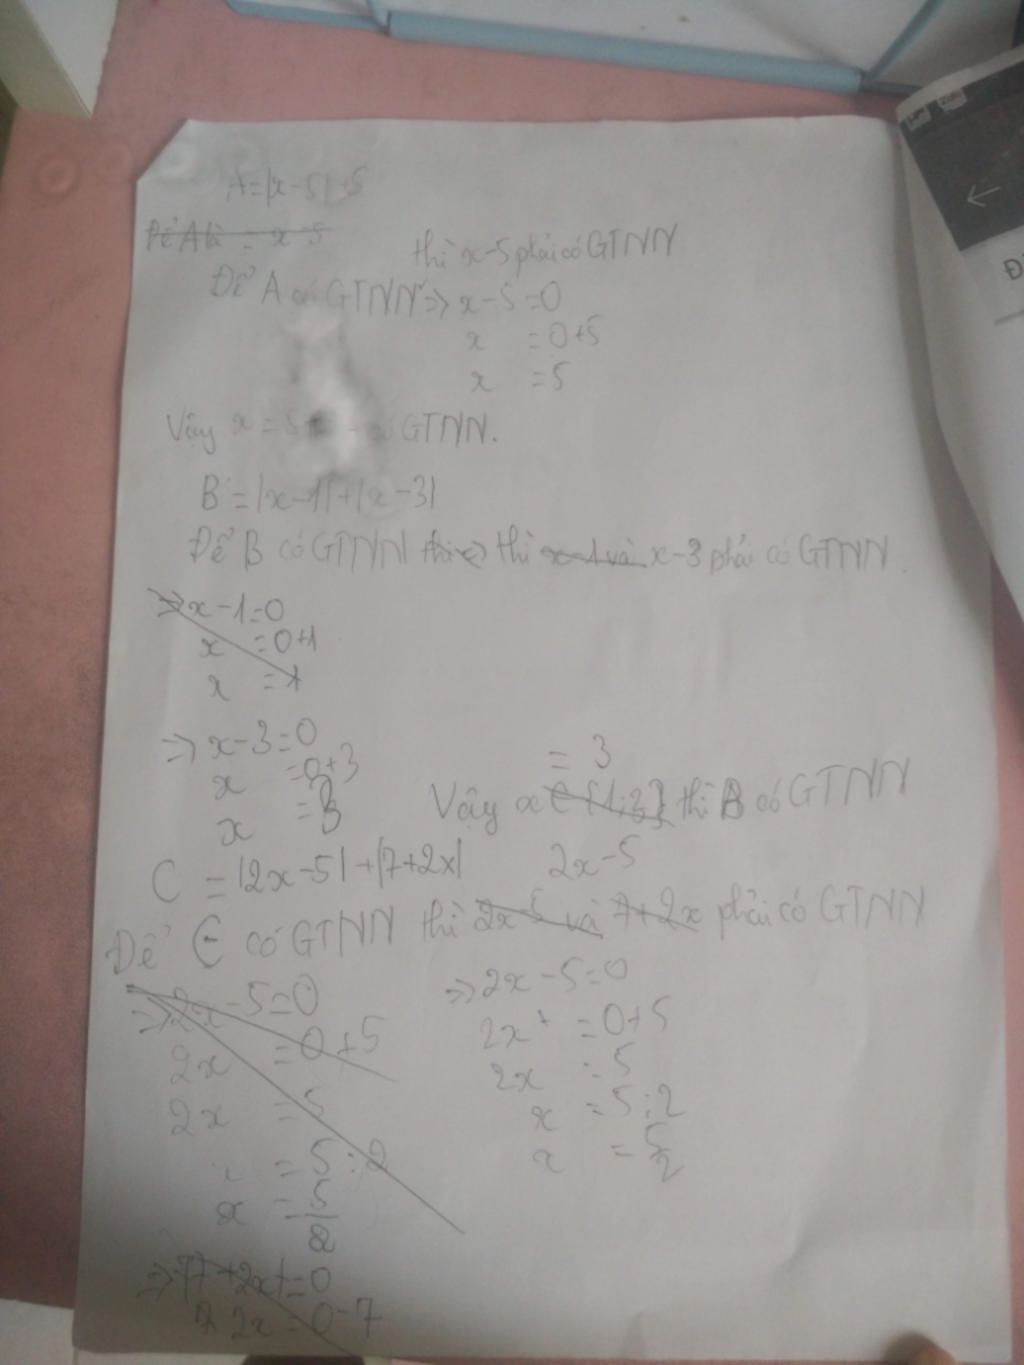 A=|x-5|+5
Để A là = x-5
thì x-5 phải có GTNN
Để A có GTNN => x-5=0
x =0+5
x =5
Vậy x = 5 GTNN.
B =|x-1|+|x-3|
Để B có GTNN thì x-1 và x-3 phải có GTNN.
=> x-1=0
x =0+1
x =1
=> x-3=0
x =0+3
x =3
= 3
Vậy x ∈ {1;3} thì B có GTNN
C = |2x-5|+|7+2x|
2x-5
Để C có GTNN thì 2x-5 và 7+2x phải có GTNN
=> 2x-5=0
2x =0+5
2x =5
= 5:2
x = 5/2
=> 7+2x=0
2x=0-7
=> 2x-5=0
2x =0+5
2x =5
x =5:2
x =5/2
Đ